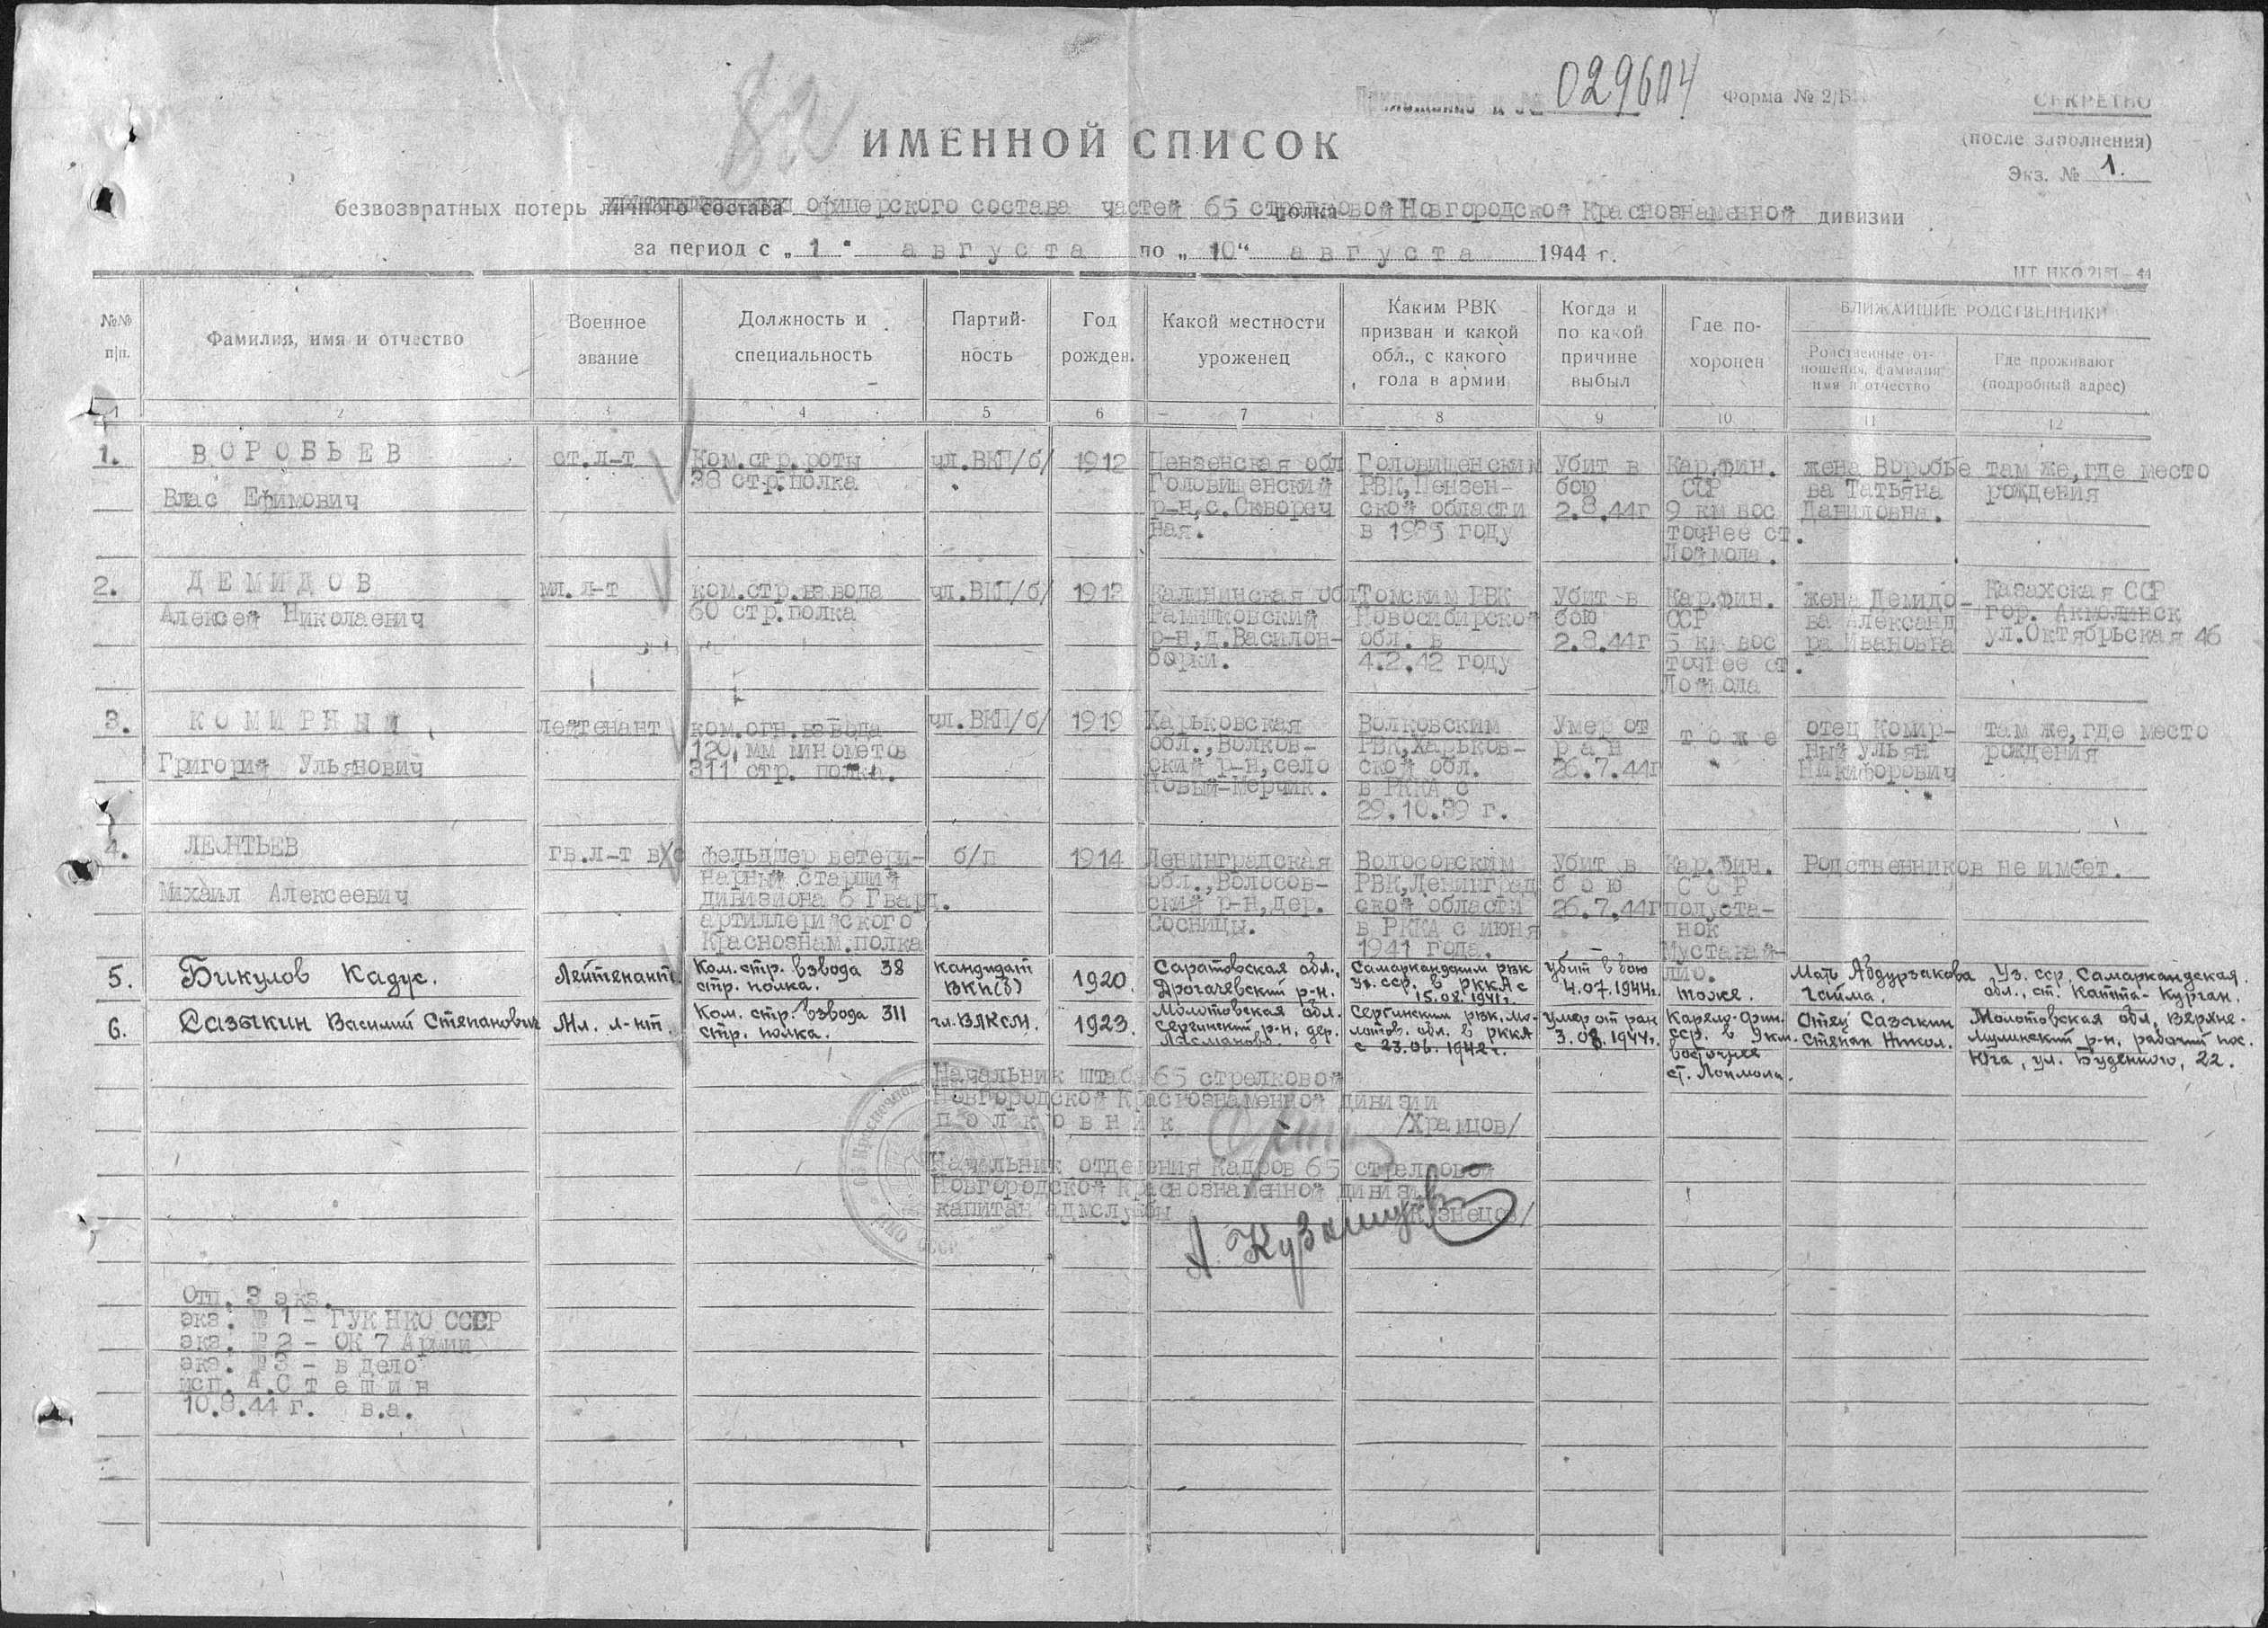 82
Приложение к № 029604 Форма № 2/Б
СЕКРЕТНО
(после заполнения)
Экз. № 1.
ИМЕННОЙ СПИСОК
безвозвратных потерь личного состава офицерского состава частей 65 стрелковой Новгородской Краснознаменной дивизии
полка
за период с „1" августа по „10" августа 1944 г.
№№ п/п.
Фамилия, имя и отчество
Военное звание
Должность и специальность
Партий-ность
Год рожден.
Какой местности уроженец
Каким РВК призван и какой обл., с какого года в армии
Когда и по какой причине выбыл
Где по-хоронен
БЛИЖАЙШИЕ РОДСТВЕННИКИ
Родственные от-ношения, фамилия имя и отчество
Где проживают (подробный адрес)
1 2 3 4 5 6 7 8 9 10 11 12
1.
ВОРОБЬЕВ
Влас Ефимович
ст.л-т
Ком.стр.роты
38 стр.полка
чл.ВКП/б/
1912
Пензенская обл
Головищенский
р-н,с.Сквореч
ная.
Головищенским
РВК,Пензен-
ской области
в 1935 году
Убит в
бою
2.8.44г
Кар.фин.
ССР
9 км вос
точнее ст.
Лоймола.
жена Воробье
ва Татьяна
Даниловна.
там же,где место
рождения
2.
ДЕМИДОВ
Алексей Николаевич
мл.л-т
ком.стр.взвода
60 стр.полка
чл.ВКП/б/
1912
Калининская обл
Рамешковский
р-н,д.Василон-
борки.
Томским РВК
Новосибирской
обл. в
4.2.42 году
Убит в
бою
2.8.44г
Кар.фин.
ССР
5 км вос
точнее ст.
Лоймола
жена Демидо-
ва Александ
ра Ивановна
Казахская ССР
гор. Акмолинск
ул.Октябрьская 46
3.
КОМИРНЫЙ
Григорий Ульянович
лейтенант
ком.огн.взвода
120 мм минометов
311 стр. полка.
чл.ВКП/б/
1919
Харьковская
обл.,Волков-
ский р-н,село
Новый-Мерчик.
Волковским
РВК,Харьков-
ской обл.
в РККА с
29.10.39 г.
Умер от
ран
26.7.44г
тоже
отец Комир-
ный Ульян
Никифорович
там же,где место
рождения
4.
ЛЕОНТЬЕВ
Михаил Алексеевич
гв.л-т в/с
фельдшер ветери-
нарный старший
дивизиона 6 Гвард.
артиллерийского
Краснознам.полка
б/п
1914
Ленинградская
обл.,Волосов-
ский р-н,дер.
Сосницы.
Волосовским
РВК,Ленинград
ской области
в РККА с июня
1941 года.
Убит в
бою
26.7.44г
Кар.фин.
ССР
полуста-
нок
Мустакай-
лио.
Родственников не имеет.
5.
Бикулов Кадус.
Лейтенант.
Ком. стр. взвода 38
стр. полка.
кандидат
ВКП(б)
1920.
Саратовская обл.,
Дрогачевский р-н.
Самаркандским РВК
Уз. сср. в РККА с
15.08.1941г.
Убит в бою
4.07.1944г.
тоже.
Мать Абдурзакова
Гайма.
Уз. сср, Самаркандская
обл., ст. Катта-Курган.
6.
Сазыкин Василий Степанович
Мл. л-нт.
Ком. стр. взвода 311
стр. полка.
чл.ВЛКСМ.
1923.
Молотовская обл.
Сергинский р-н, дер.
Сергинским РВК, Мо-
лотов. обл. в РККА
с 23.06.1942г.
умер от ран
3.08.1944г.
Карело-Фин.
сср. в 9 км.
восточнее
ст. Лоймола.
Отец Сазыкин
Степан Никол.
Молотовская обл, Верхне-
муллинский р-н, рабочий пос.
Юга, ул. Буденного, 22.
Начальник штаба 65 стрелковой
Новгородской Краснознаменной дивизии
полковник /Храмцов/
Начальник отделения кадров 65 стрелковой
Новгородской Краснознаменной дивизии
капитан адмслужбы /Кузнецов/
А. Кузнецов
НКО СССР
Отп. 3 экз.
экз. № 1 - ГУК НКО СССР
экз. № 2 - ОК 7 Армии
экз. № 3 - в дело
исп. А.Стешин
10.8.44 г. в.а.